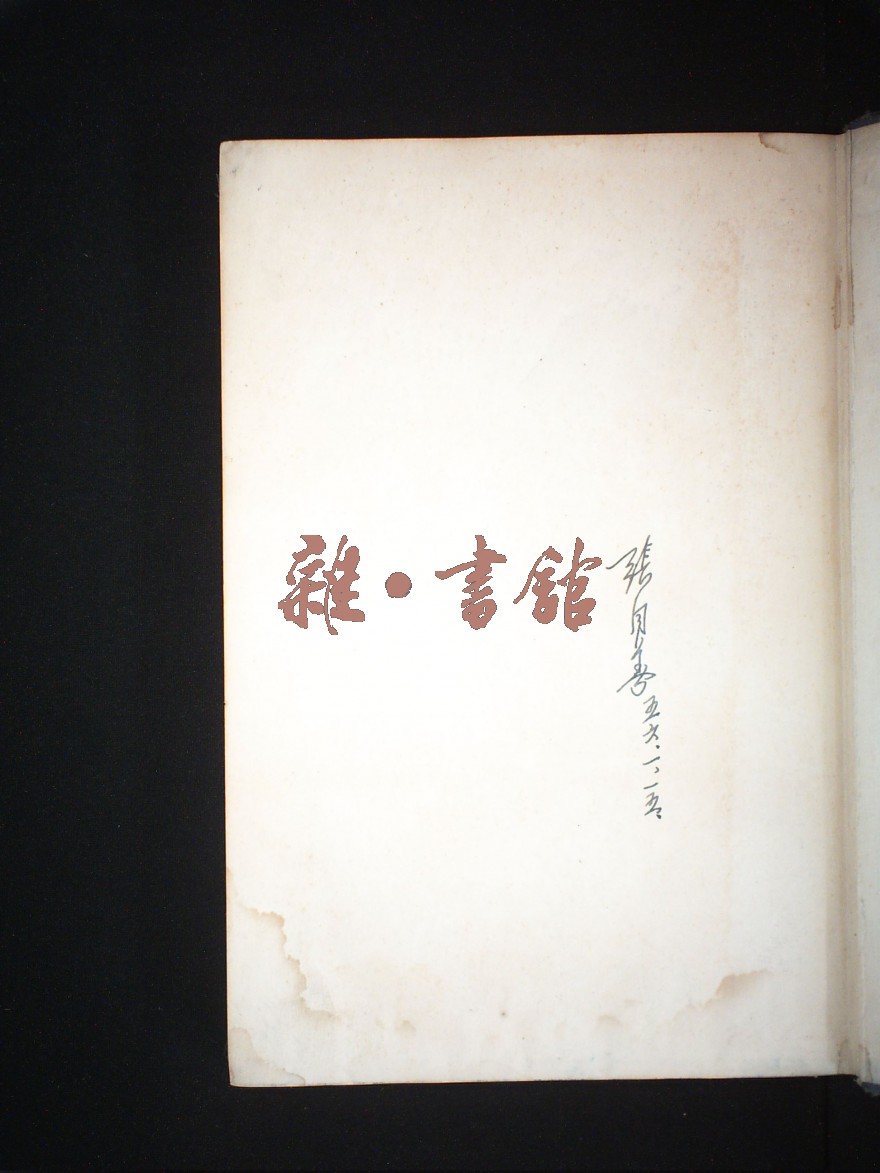 雜·書館
張自善
五六.一.一五.